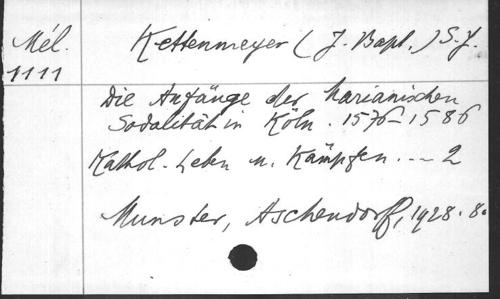 Mél.
1111
Kettenmeyer (J. Bapt.) S.J.
Die Anfänge der Marianischen
Sodalität in Köln. 1576-1586
Kathol. Leben u. Kämpfen... 2
Munster, Aschendorff, 1928. 8.